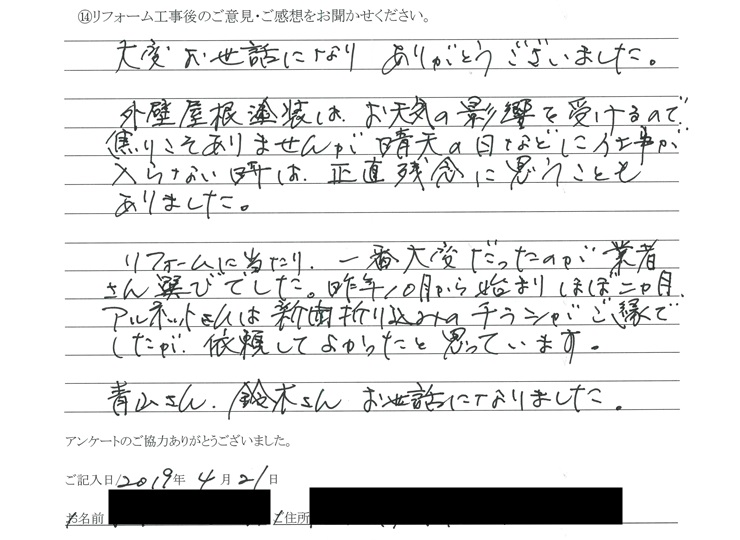 ⑭リフォーム工事後のご意見・ご感想をお聞かせください。
大変お世話になり ありがとうございました。
外壁屋根塗装は、お天気の影響を受けるので
焦りこそありませんが晴天の日などに仕事が
入らない時は、正直残念に思うことも
ありました。
リフォームに当たり、一番大変だったのが業者
さん選びでした。昨年10月から始まりほぼ二ヶ月、
アルネットさんは新聞折り込みのチラシがご縁で
したが、依頼してよかったと思っています。
青山さん、鈴木さん お世話になりました。
アンケートのご協力ありがとうございました。
ご記入日/2019年 4月21日
お名前 ご住所